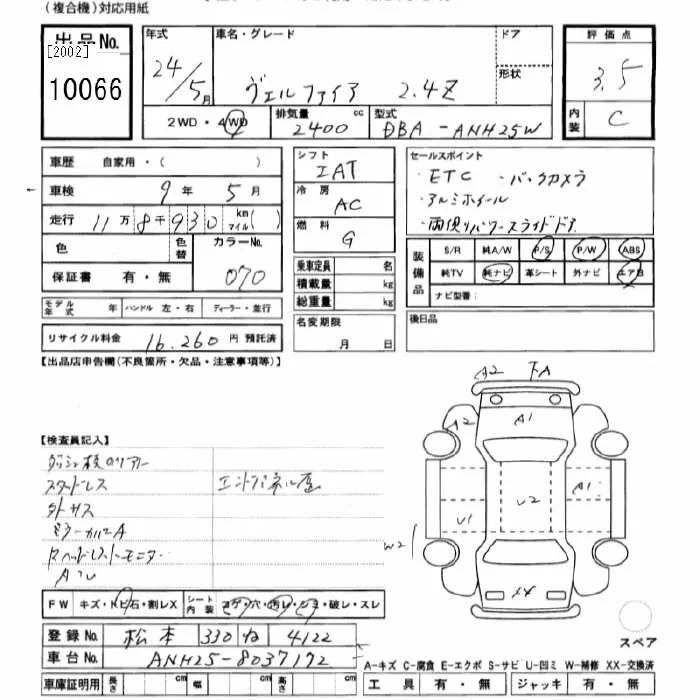 (複合機)対応用紙
出品No.
[2002]
10066
年式
24/5月
車名・グレード
ヴェルファイア 2.4Z
ドア
形状
評価点
3.5
内装
C
2WD・4WD
排気量
2400 cc
型式
DBA-ANH25W
車歴 自家用・( )
車検 9年 5月
走行 11万8千930 km マイル( )
色
色替
カラーNo.
070
保証書 有・無
モデル年式 年 ハンドル 左・右 ディーラー・並行
リサイクル料金 16,260円 預託済
シフト
IAT
冷房
AC
燃料
G
乗車定員 名
積載量 kg
総重量 kg
名変期限
月 日
セールスポイント
・ETC ・バックカメラ
・アルミホイール
・両側パワースライドドア
装備品
S/R 純A/W P/S P/W ABS
純TV 純ナビ 革シート 外ナビ エアB
ナビ型番:
後日品
【出品店申告欄(不良箇所・欠品・注意事項等)】
【検査員記入】
スタッドレス
エンドパネル歪
外ガス
ミラーカバーA
Rヘッドレストモニター
A2 下A
A2
A1
A1
U2
U1
W2
XX
スペア
FW キズ・トビ石・割レX
シート内装 コゲ・穴・汚レ・シミ・破レ・スレ
登録No. 松本 330 ね 4122
車台No. ANH25-8037192
車庫証明用 長さ cm 幅 cm 高さ cm
A-キズ C-腐食 E-エクボ S-サビ U-凹ミ W-補修 XX-交換済
工具 有・無 ジャッキ 有・無